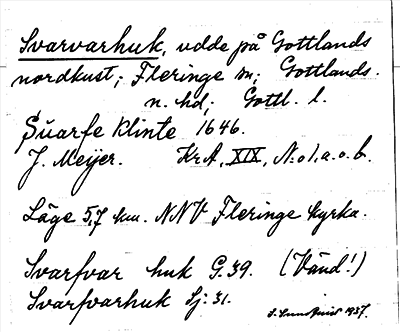 Svarvarhuk, udde på Gottlands
nordkust; Fleringe sn; Gottlands
n. hd; Gottl. l.
Suarfe Klinte 1646.
J. Meijer. Kr.A, XIX, N:o 1, a.o.b.
Läge 5,7 km. NNV Fleringe kyrka.
Svarfvar huk G. 39. (Vänd!)
Svarfvarhuk Sj: 31.
1937.